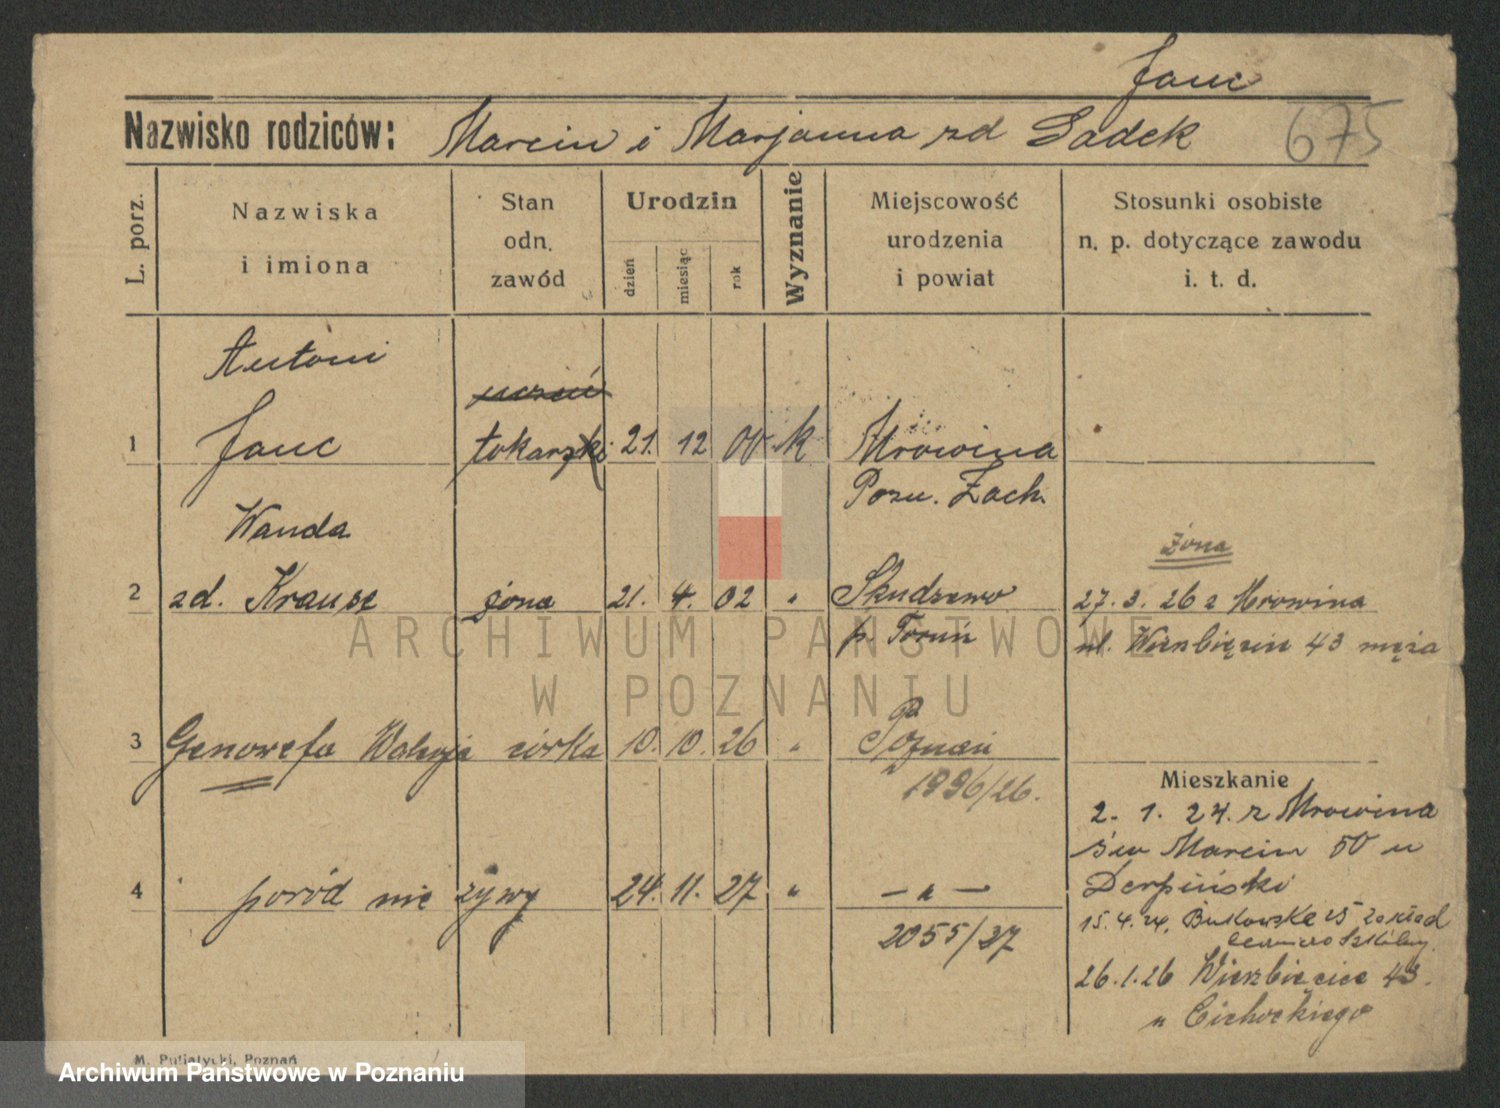 Janc
Nazwisko rodziców: Marcin i Marjanna zd Sadek 675
L. porz.
Nazwiska
i imiona
Stan
odn.
zawód
Urodzin
dzień
miesiąc
rok
Wyznanie
Miejscowość
urodzenia
i powiat
Stosunki osobiste
n. p. dotyczące zawodu
i. t. d.
Antoni
uczeń
1 Janc tokarski 21. 12 00 k Mrowina
Pozn. Zach.
Wanda
żona
2 zd. Krause żona 21. 4. 02 " Skudzewo 27. 3. 26 z Mrowina
p. Toruń ul. Wierzbięcice 43 męża
3 Genowefa córka 10. 10. 26 " Poznań
1996/26.
Mieszkanie
2. 1. 24. z Mrowina
św Marcin 50 u
4 poród nie żywy 24. 11. 27 " — " — Derpiński
2055/27
15. 4. 24. Bukowska 25 zakład
26.1.26 Wierzbięcice 43.
u Cichockiego
M. Putiatycki, Poznań
ARCHIWUM PAŃSTWOWE
W POZNANIU
Archiwum Państwowe w Poznaniu